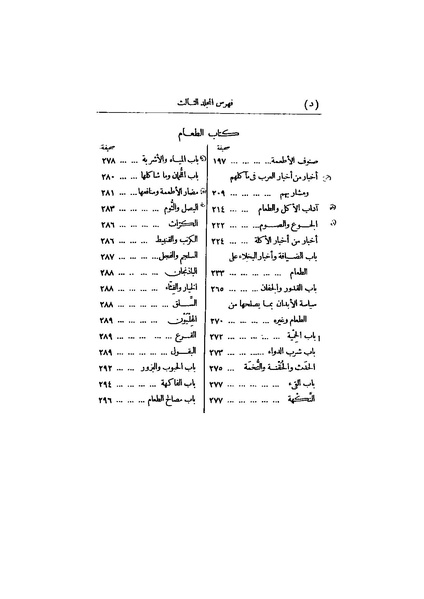 (د) فهرس المجلد الثالث
كتاب الطعام
صحيفة
صنوف الأطعمة... ... ... ... ١٩٧
أخبار من أخبار العرب فى مآكلهم
ومشاربهم ... ... ... ... ٢٠٩
آداب الأكل والطعام ... ... ٢١٤
الجوع والصوم... ... ... ... ٢٢٢
أخبار من أخبار الأكلة ... ... ٢٢٤
باب الضيافة وأخبار البخلاء على
الطعام ... ... ... ... ... ٢٣٣
باب القدور والجفان ... ... ... ٢٦٥
سياسة الأبدان بما يصلحها من
الطعام وغيره ... ... ... ... ٢٧٠
باب الحمية ... ... ... ... ... ٢٧٢
باب شرب الدواء ... ... ... ٢٧٣
الحدث والحُقنة والتُّخمة ... ٢٧٥
باب القىء ... ... ... ... ... ٢٧٧
النَّكهة ... ... ... ... ... ٢٧٧
صحيفة
باب المياه والأشربة ... ... ٢٧٨
باب اللُّحمان وما شاكلها ... ... ٢٨٠
مضار الأطعمة ومنافعها ... ... ٢٨١
البصل والثُّوم ... ... ... ... ٢٨٣
الكرّاث ... ... ... ... ... ٢٨٦
الكرنب والقنبيط ... ... ... ٢٨٦
السلجم والفجل ... ... ... ... ٢٨٧
الباذنجان ... ... ... .. ٢٨٨
الخيار والقِثّاء ... ... ... ... ٢٨٨
السِّلق ... ... ... ... ... ٢٨٨
الهِلْيَوْن ... ... ... ... ... ٢٨٩
القرع ... ... ... ... ... ٢٨٩
البقول ... ... ... ... ... ٢٨٩
باب الحبوب والبزور ... ... ٢٩٢
باب الفاكهة ... ... ... ... ٢٩٤
باب مصالح الطعام ... ... ... ٢٩٦